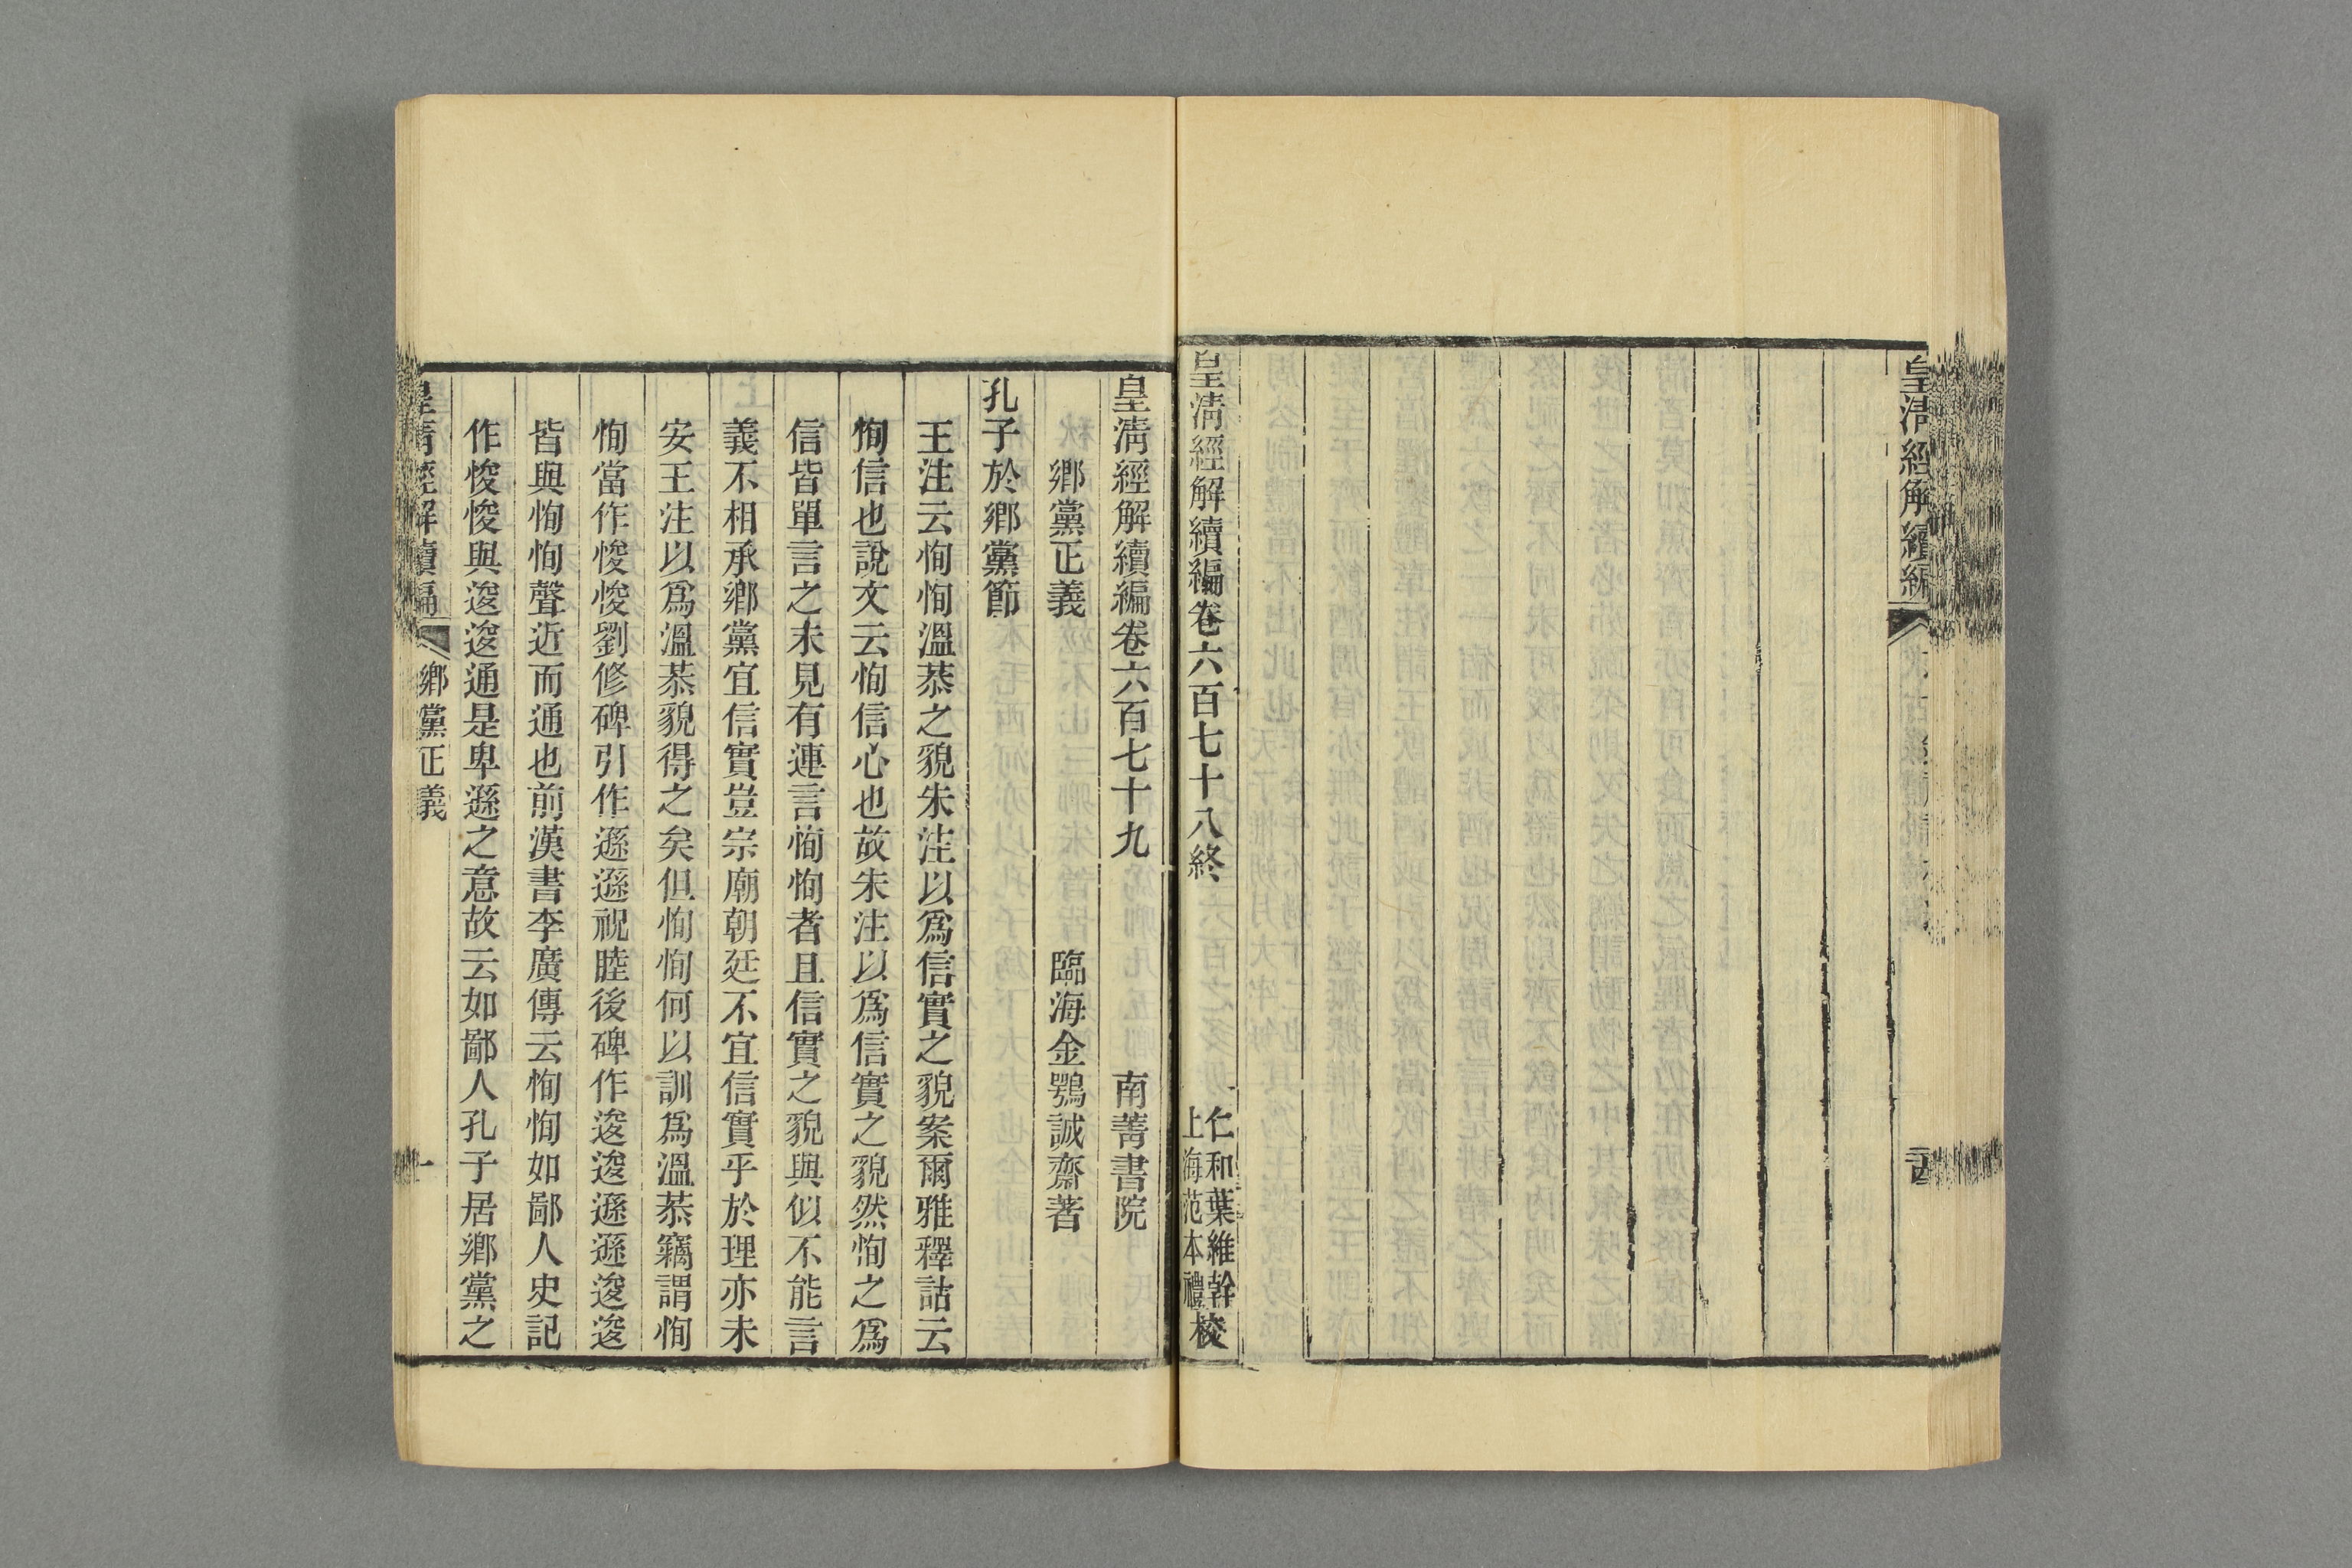 皇清經解續編
皇清經解續編卷六百七十八終
仁和葉維幹
上海范本禮
校
皇清經解續編卷六百七十九
南菁書院
鄉黨正義
臨海金鶚誠齋著
孔子於鄉黨節
王注云恂恂溫恭之貌朱注以爲信實之貌案爾雅釋詁云
恂信也說文云恂信心也故朱注以爲信實之貌然恂之爲
信皆單言之未見有連言恂恂者且信實之貌與似不能言
義不相承鄉黨宜信實豈宗廟朝廷不宜信實乎於理亦未
安王注以爲溫恭貌得之矣但恂恂何以訓爲溫恭竊謂恂
恂當作悛悛劉修碑引作遜遜祝睦後碑作逡逡遜遜逡逡
皆與恂恂聲近而通也前漢書李廣傳云恂恂如鄙人史記
作悛悛與逡逡通是卑遜之意故云如鄙人孔子居鄉黨之
皇清經解續編
鄉黨正義
一